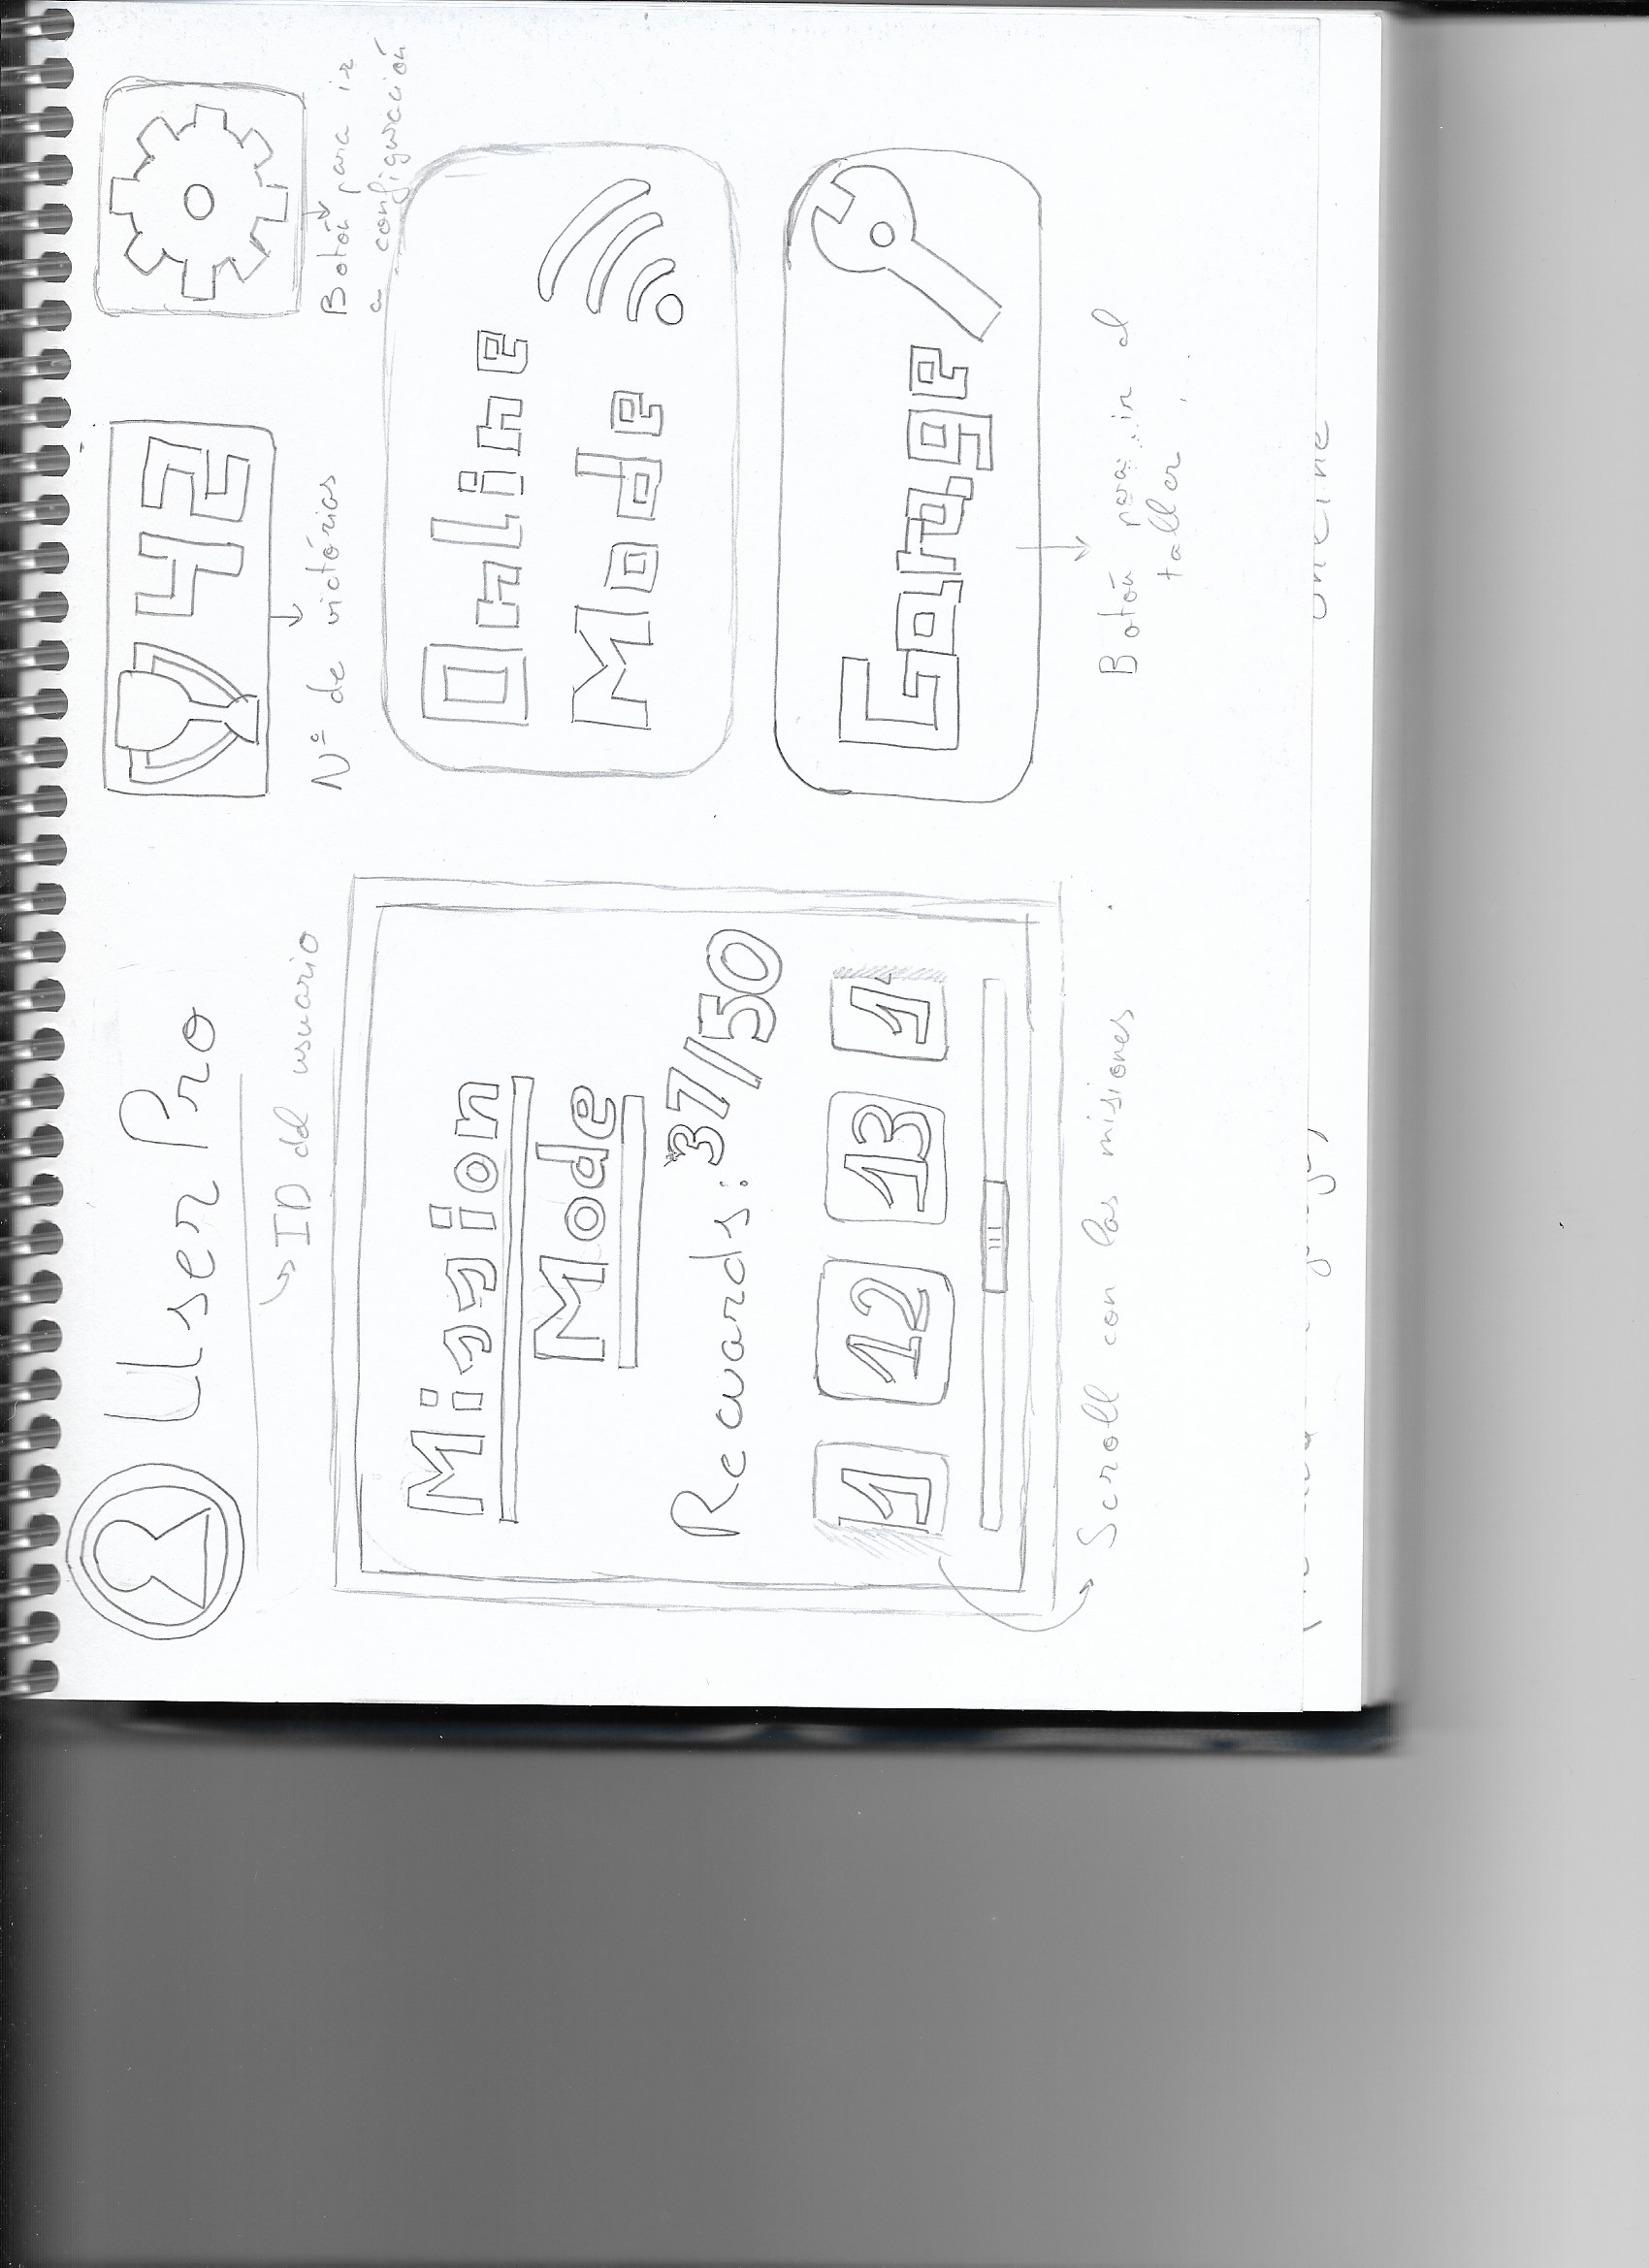 User Pro
ID del usuario
42
Nº de victórias
Botón para ir
a configuración
Mission
Mode
Rewards: 37/50
1 12 13 1
Scroll con las misiones
Online
Mode
Garage
Botón para ir al
taller